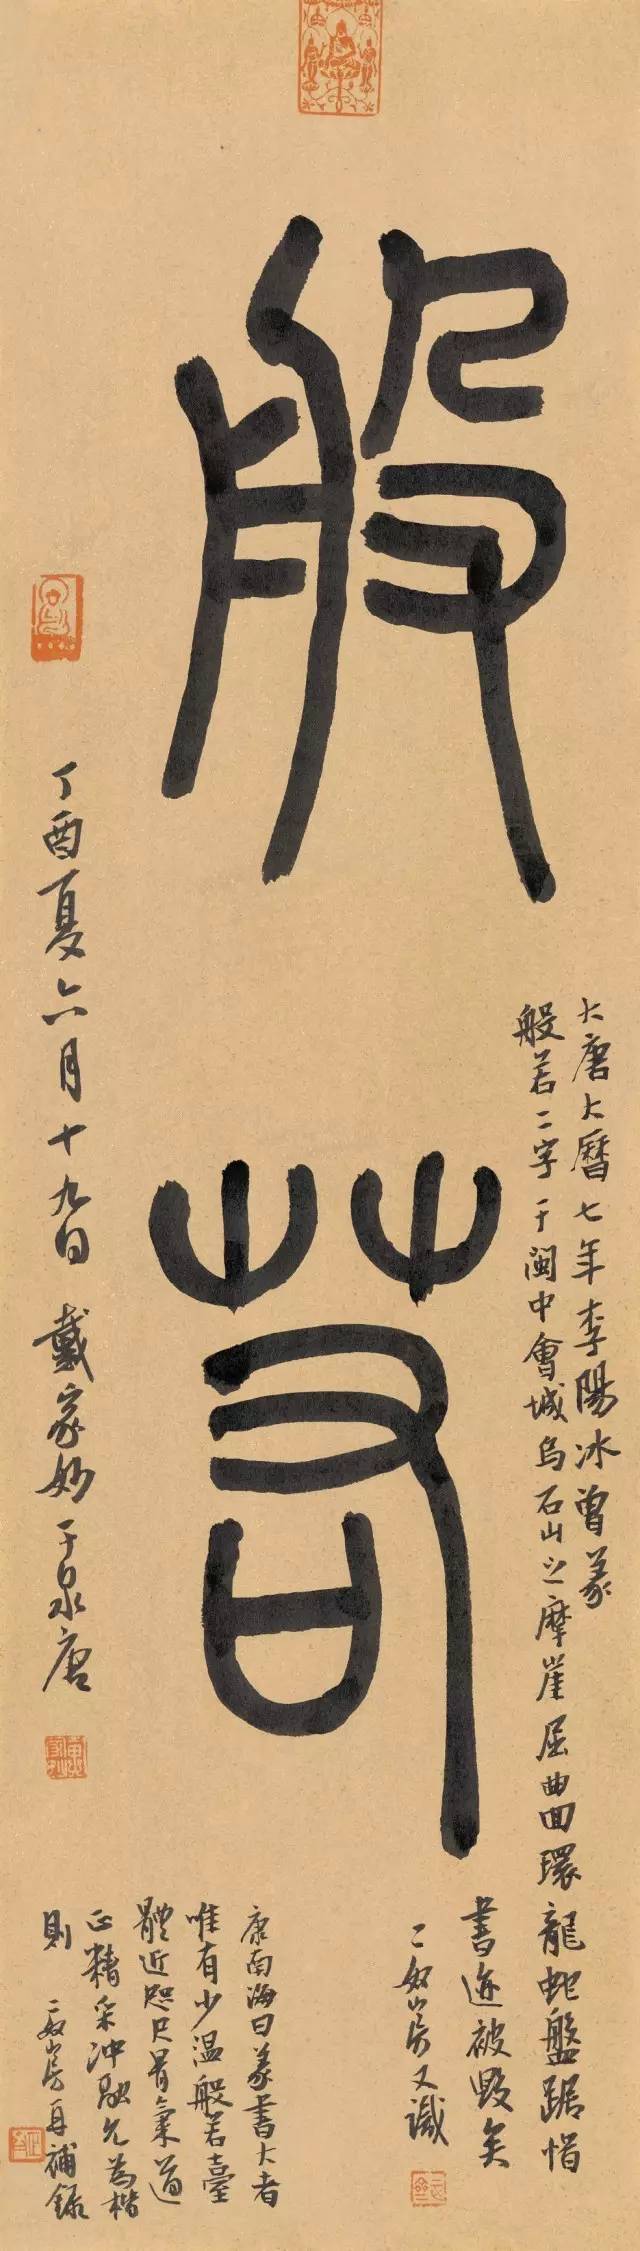 般若
大唐大曆七年李陽冰曾篆
般若二字于閩中會城烏石山之摩崖屈曲環龍蛇盤踞惜
書迹被毀矣
二如山房又識
丁酉夏六月十九日戴家妙于泉唐
康南海曰篆書大者
唯有少温般若臺
體近咫尺骨氣遒
正精采冲融允為楷
則 山房再補錄